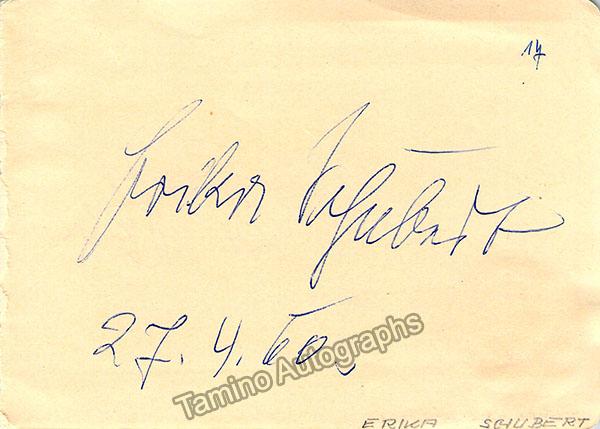 17
Erika Schubert
27.4.60.
Tamino Autographs
ERIKA SCHUBERT